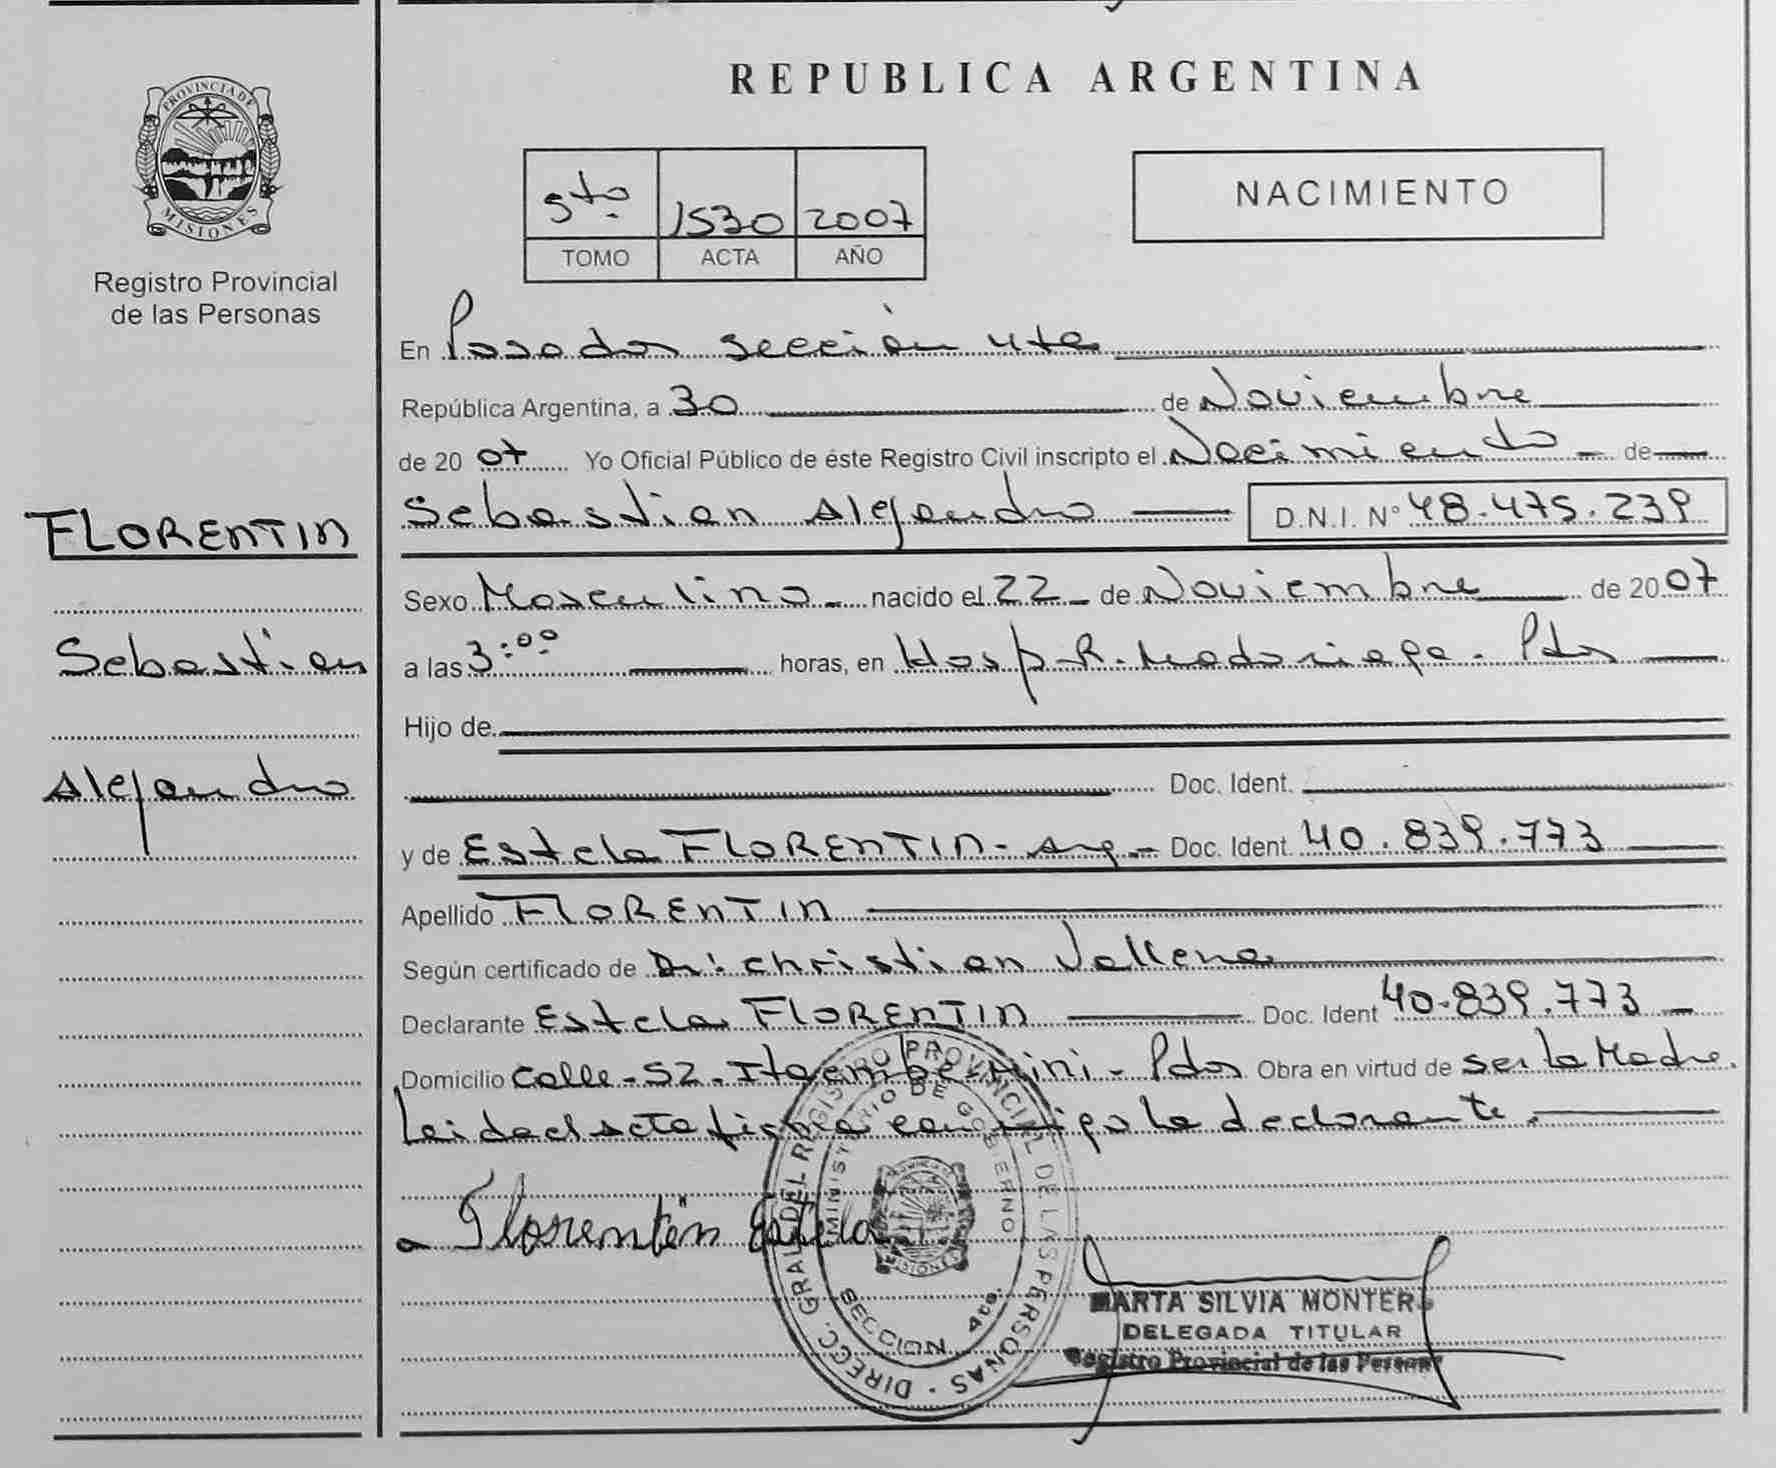 PROVINCIA DE
MISIONES
Registro Provincial
de las Personas
FLORENTIN
Sebastian
Alejandro
REPUBLICA ARGENTINA
5to 1530 2007
TOMO ACTA AÑO
NACIMIENTO
En Posadas sección 4ta
República Argentina, a 30 de Noviembre
de 2007 Yo Oficial Público de éste Registro Civil inscripto el Nacimiento de
Sebastian Alejandro D.N.I. N° 48.475.239
Sexo Masculino nacido el 22 de Noviembre de 2007
a las 3:00 horas, en Hosp. R. Madariaga. Pdas
Hijo de
Doc. Ident.
y de Estela FLORENTIN - Arg - Doc. Ident 40.839.773
Apellido FLORENTIN
Según certificado de Dr: Christian
Declarante Estela FLORENTIN Doc. Ident 40.839.773
Domicilio Calle - 52 - Itaembe Mini - Pdas Obra en virtud de ser la Madre.
Leida el acta firma conmigo la declarante.
Florentin Estela
DIRECC. GRAL. DEL REGISTRO PROVINCIAL DE LAS PERSONAS
MINISTERIO DE GOBIERNO
PROVINCIA DE
MISIONES
SECCION 4ta.
MARTA SILVIA MONTERO
DELEGADA TITULAR
Registro Provincial de las Personas